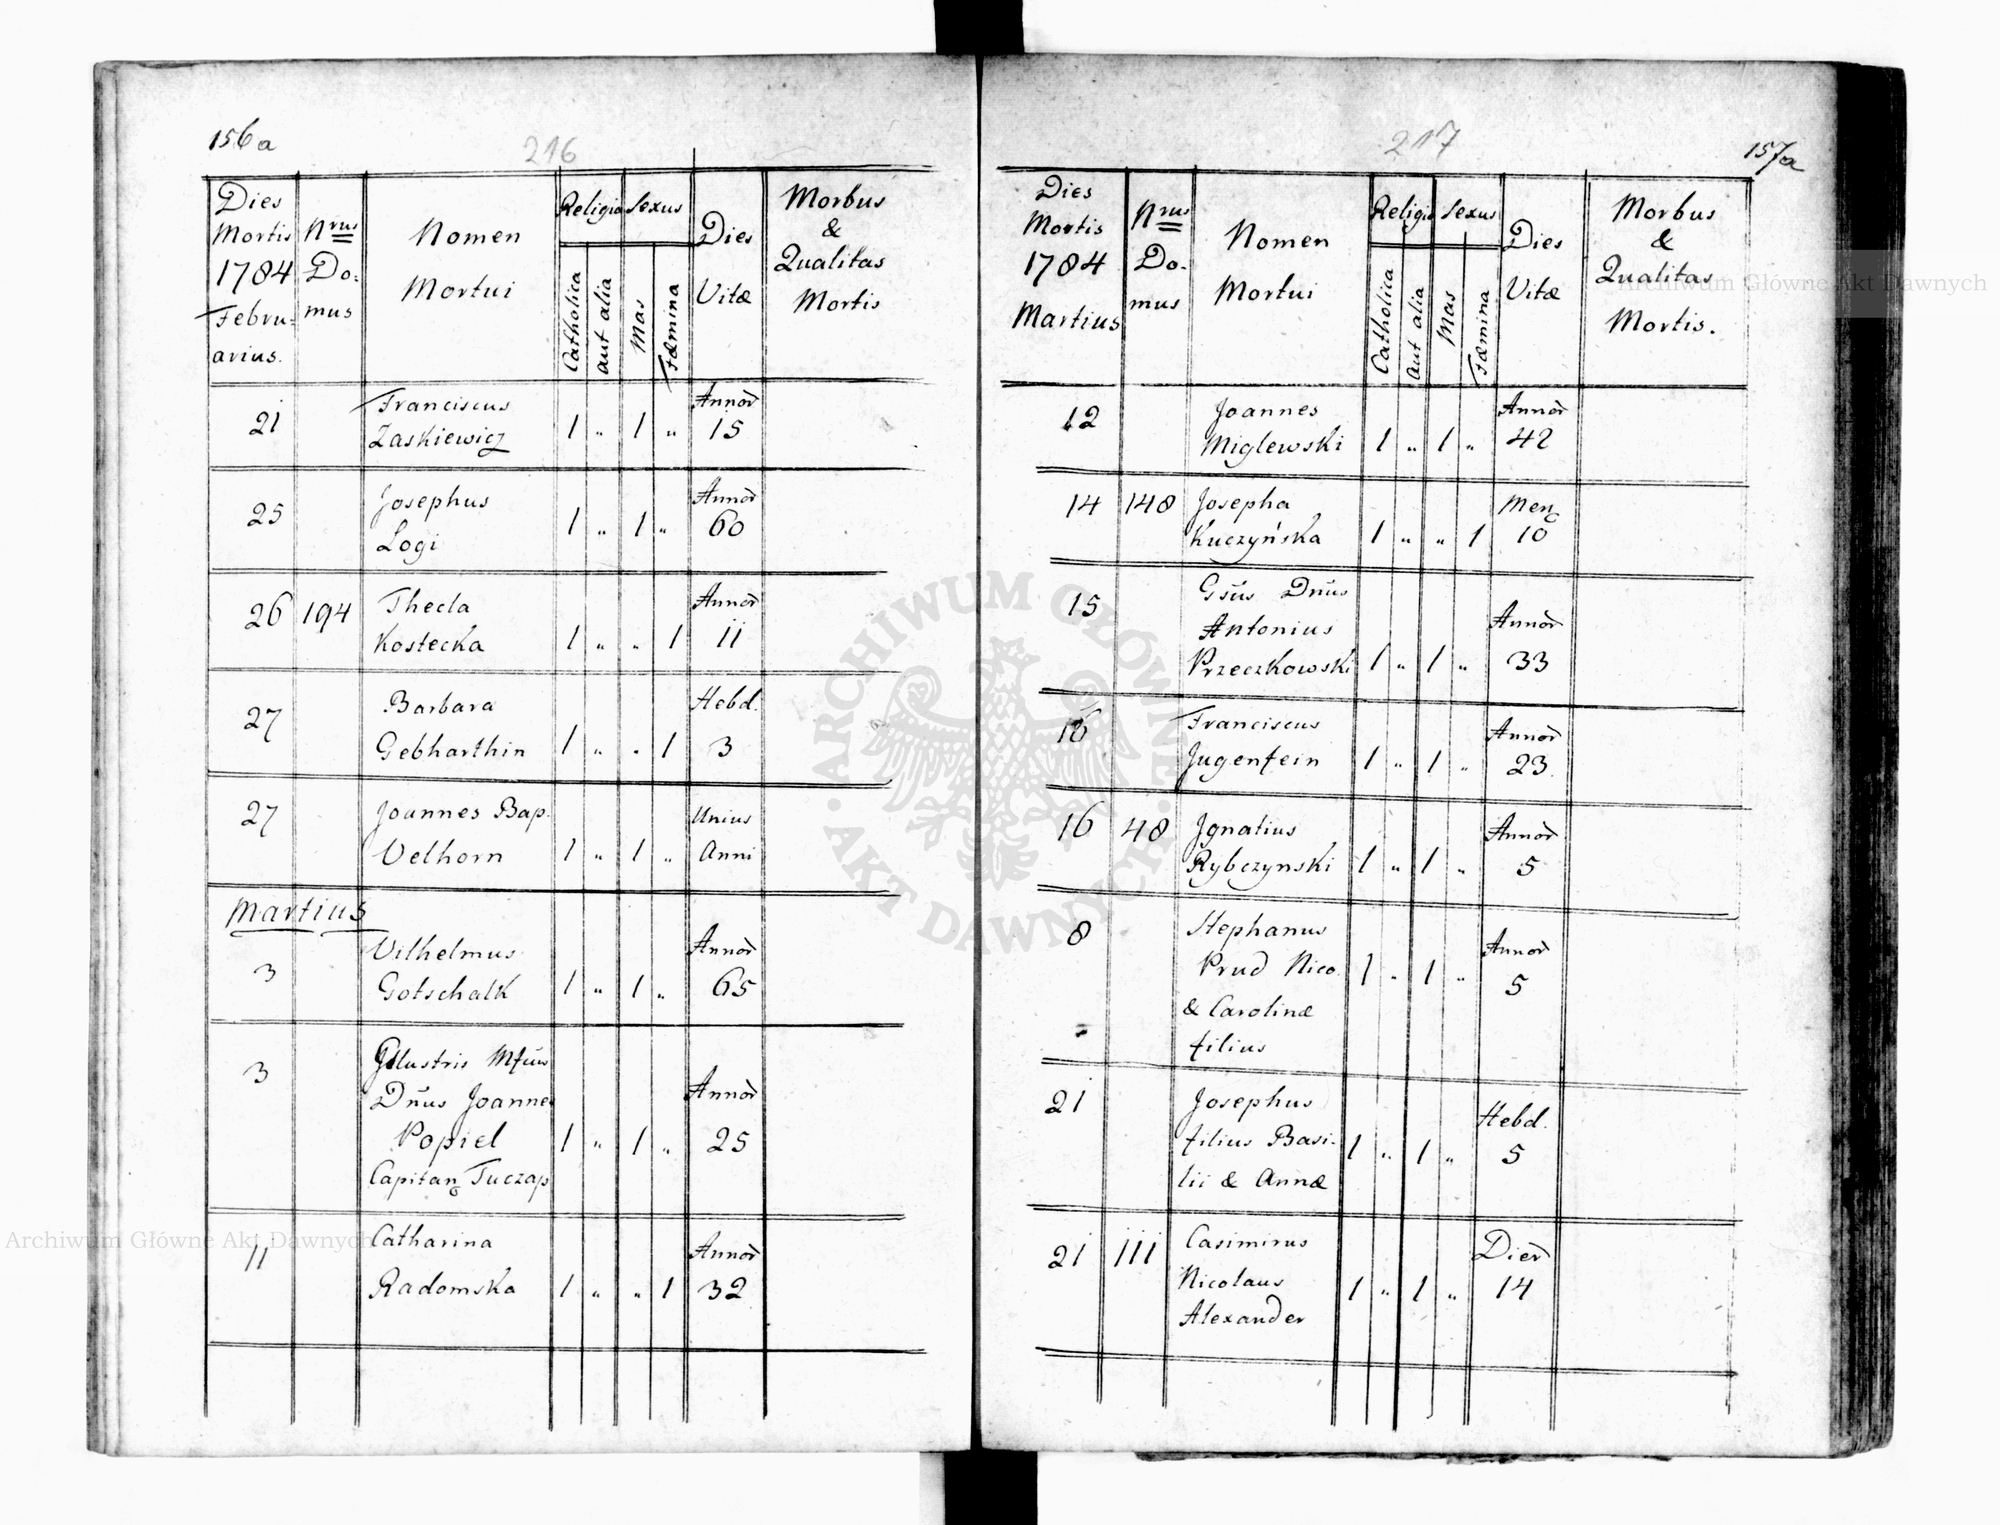 156a
216
Dies Mortis 1784 Februarius.
Nrus Domus
Nomen Mortui
Religio
Catholica
aut alia
Sexus
Mas
Fæmina
Dies Vitæ
Morbus & Qualitas Mortis
21 Franciscus Annor̃
Zaskiewicz 1 " 1 " 15
25 Josephus Annor̃
Logi 1 " 1 " 60
26 194 Thecla Annor̃
Kostecka 1 " " 1 11
27 Barbara Hebd.
Gebharthin 1 " " 1 3
27 Joannes Bap. Unius
Velhorn 1 " 1 " Anni
Martius
Vilhelmus Annor̃
3 Gotschalk 1 " 1 " 65
3 Illustris Mfūus
Dn̄us Joannes Annor̃
Popiel 1 " 1 " 25
Capitan9 Tuczap
11 Catharina Annor̃
Radomska 1 " " 1 32
217
157a
Dies Mortis 1784 Martius
Nrus Domus
Nomen Mortui
Religio
Catholica
aut alia
Sexus
Mas
Fæmina
Dies Vitæ
Morbus & Qualitas Mortis.
12 Joannes Annor̃
Miglewski 1 " 1 " 42
14 148 Josepha Men
Kuczyńska 1 " " 1 10
15 Gsūs Dn̄us
Antonius Annor̃
Przeczkowski 1 " 1 " 33
16 Franciscus Annor̃
Jugenfein 1 " 1 " 23
16 48 Jgnatius Annor̃
Rybczynski 1 " 1 " 5
8 Stephanus Annor̃
Prud Nico. 1 " 1 " 5
& Carolinæ
filius
21 Josephus Hebd.
filius Basi- 1 " 1 " 5
lii & Annæ
21 111 Casimirus Dier̃
Nicolaus 1 " 1 " 14
Alexander
ARCHIWUM GŁÓWNE
· AKT DAWNYCH ·
Archiwum Główne Akt Dawnych
Archiwum Główne Akt Dawnych